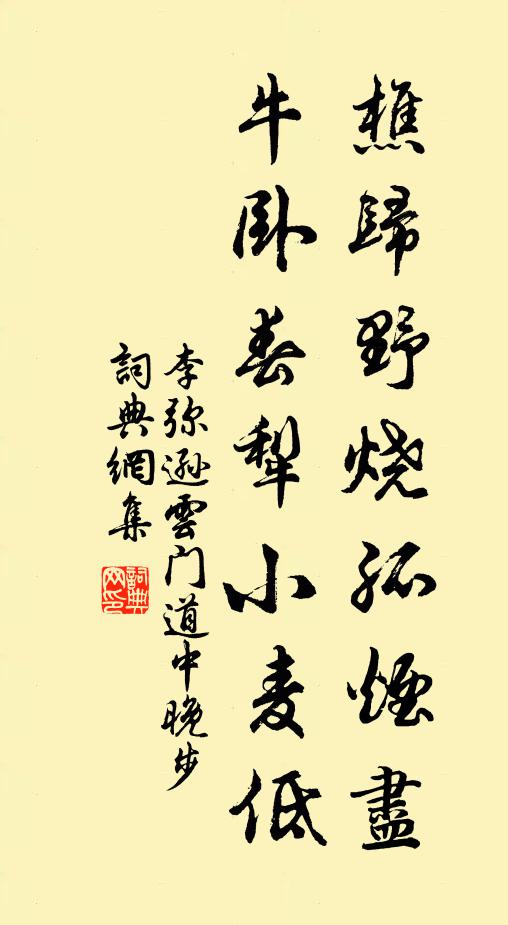 樵歸野烧孤煙盡
牛卧春犁小麦低
李弥遜雲门道中晚步
詞典網集
詞典
网印